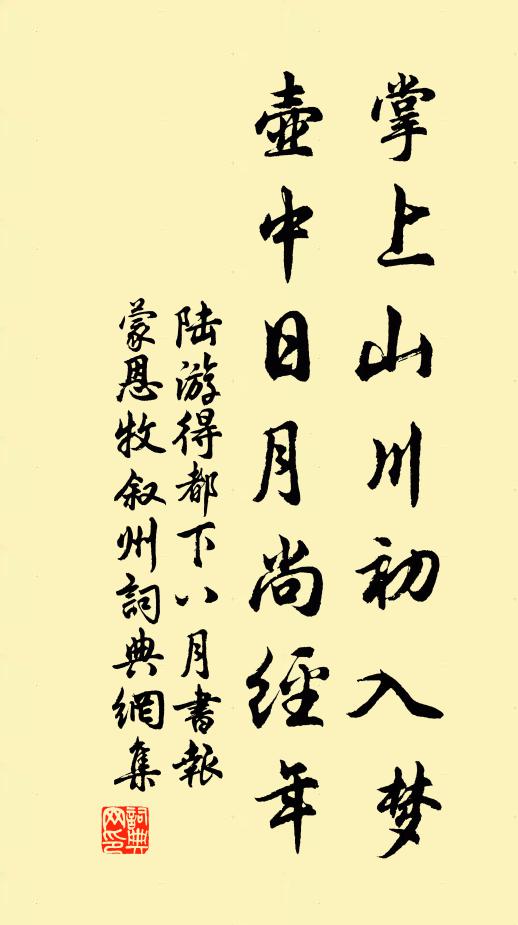 掌上山川初入梦
壺中日月尚經年
陆游得都下八月書報
蒙恩牧叙州詞典網集
詞典网印